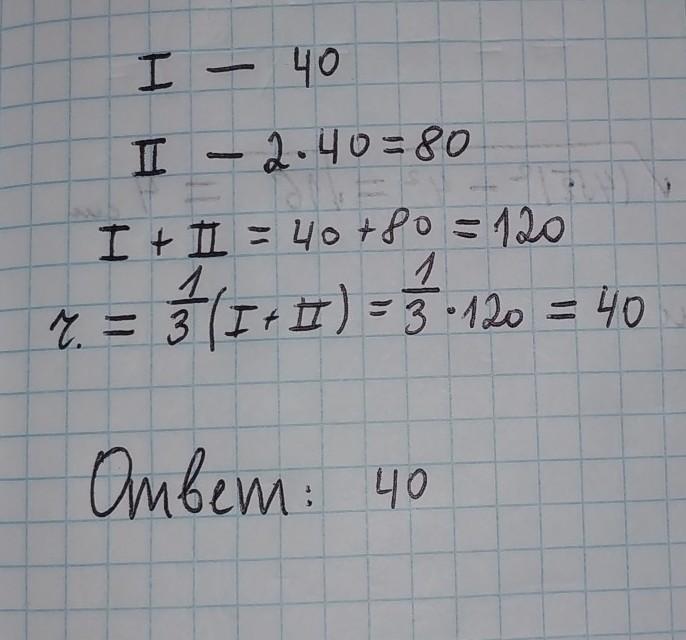 I — 40
II — 2·40=80
I + II = 40+80=120
ч. = 1/3 (I+II) = 1/3 ·120 = 40
Ответ: 40